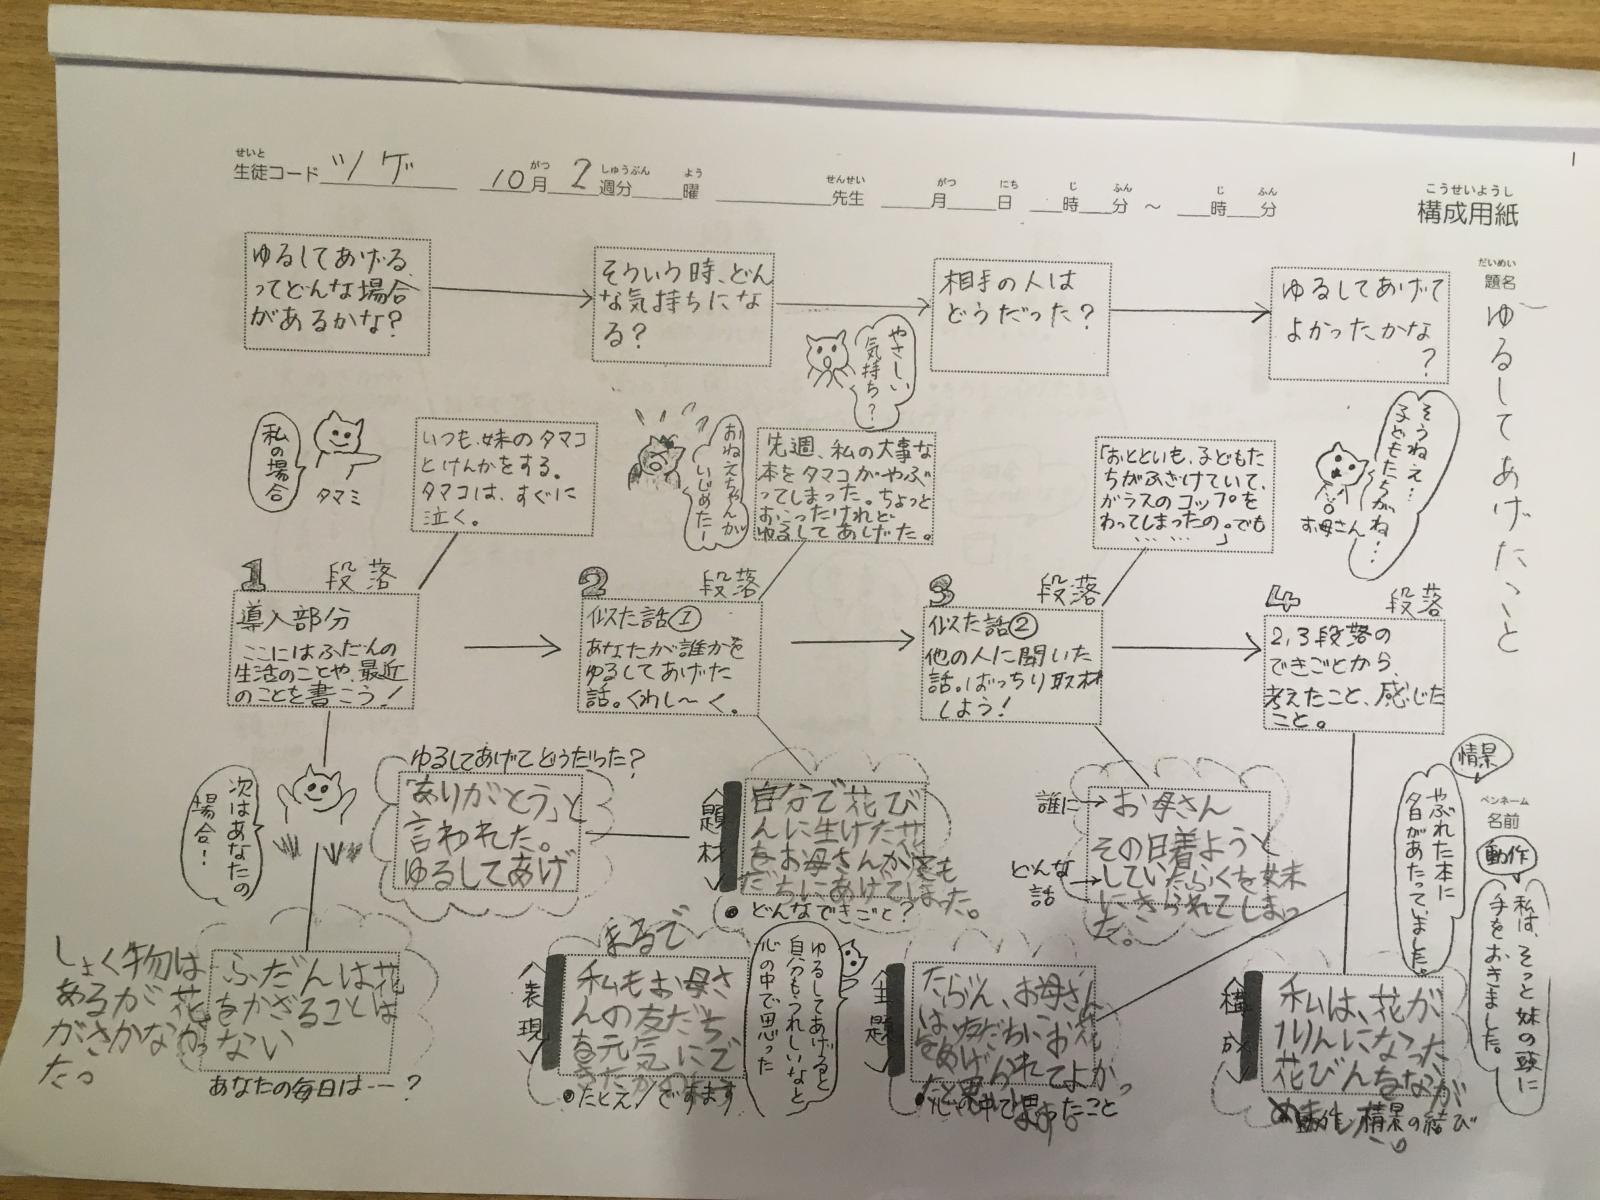 せいと
生徒コード ツゲ
10月 2週分 曜
がつ しゅうぶん よう
先生
せんせい
月 日 時 分 ～ 時 分
がつ にち じ ふん じ ふん
こうせいようし
構成用紙
1
だいめい
題名
ゆるしてあげたこと
ゆるしてあげる
ってどんな場合
があるかな?
そういう時、どん
な気持ちにな
る?
相手の人は
どうだった?
ゆるしてあげて
よかったかな
?
やさしい
気持ち?
私の場合
タマミ
いつも、妹のタマコ
とけんかをする。
タマコは、すぐに
泣く。
おねえちゃんが
いじめたー
先週、私の大事な
本をタマコがやぶ
ってしまった。ちょっと
おこったけれど
ゆるしてあげた。
「おとといも、子どもた
ちがふざけていて、
ガラスのコップを
わってしまったの。でも
…… ……」
お母さん
そうねえ…
子どもたちがね…
1 段落
導入部分
ここにはふだんの
生活のことや、最近
のことを書こう!
2 段落
似た話①
あなたが誰かを
ゆるしてあげた
話。くわし～く。
3 段落
似た話②
他の人に聞いた
話。ばっちり取材
しよう!
4 段落
2,3段落の
できごとから、
考えたこと、感じた
こと。
次はあなたの
場合!
ゆるしてあげてどうだった?
「ありがとう」と
言われた。
ゆるしてあげ
題材
自分で花び
んに生けた花
をお母さんが友
だちにあげてしまった。
●どんなできごと?
誰に→お母さん
どんな
話→
その日着ようと
していたふくを妹
にきられてしまっ
た。
情景
やぶれた本に
夕日があたってました。
ペンネーム
名前
動作
私は、そっと妹の頭に
手をおきました。
しょく物は
あるが花
がさかなかっ
た。
ふだんは花
をかざることは
ない
あなたの毎日は…?
表現
まるで
私もお母さ
んの友だち
を元気にで
きたかのようです
●たとえ
ゆるしてあげると
自分もうれしいなと
心の中で思った
主題
お母さん
は友だちにお花
をあげ
●心の中で思ったこと
構成
私は、花が
1りんになった
花びんをなが
めました。
動作 情景の結び